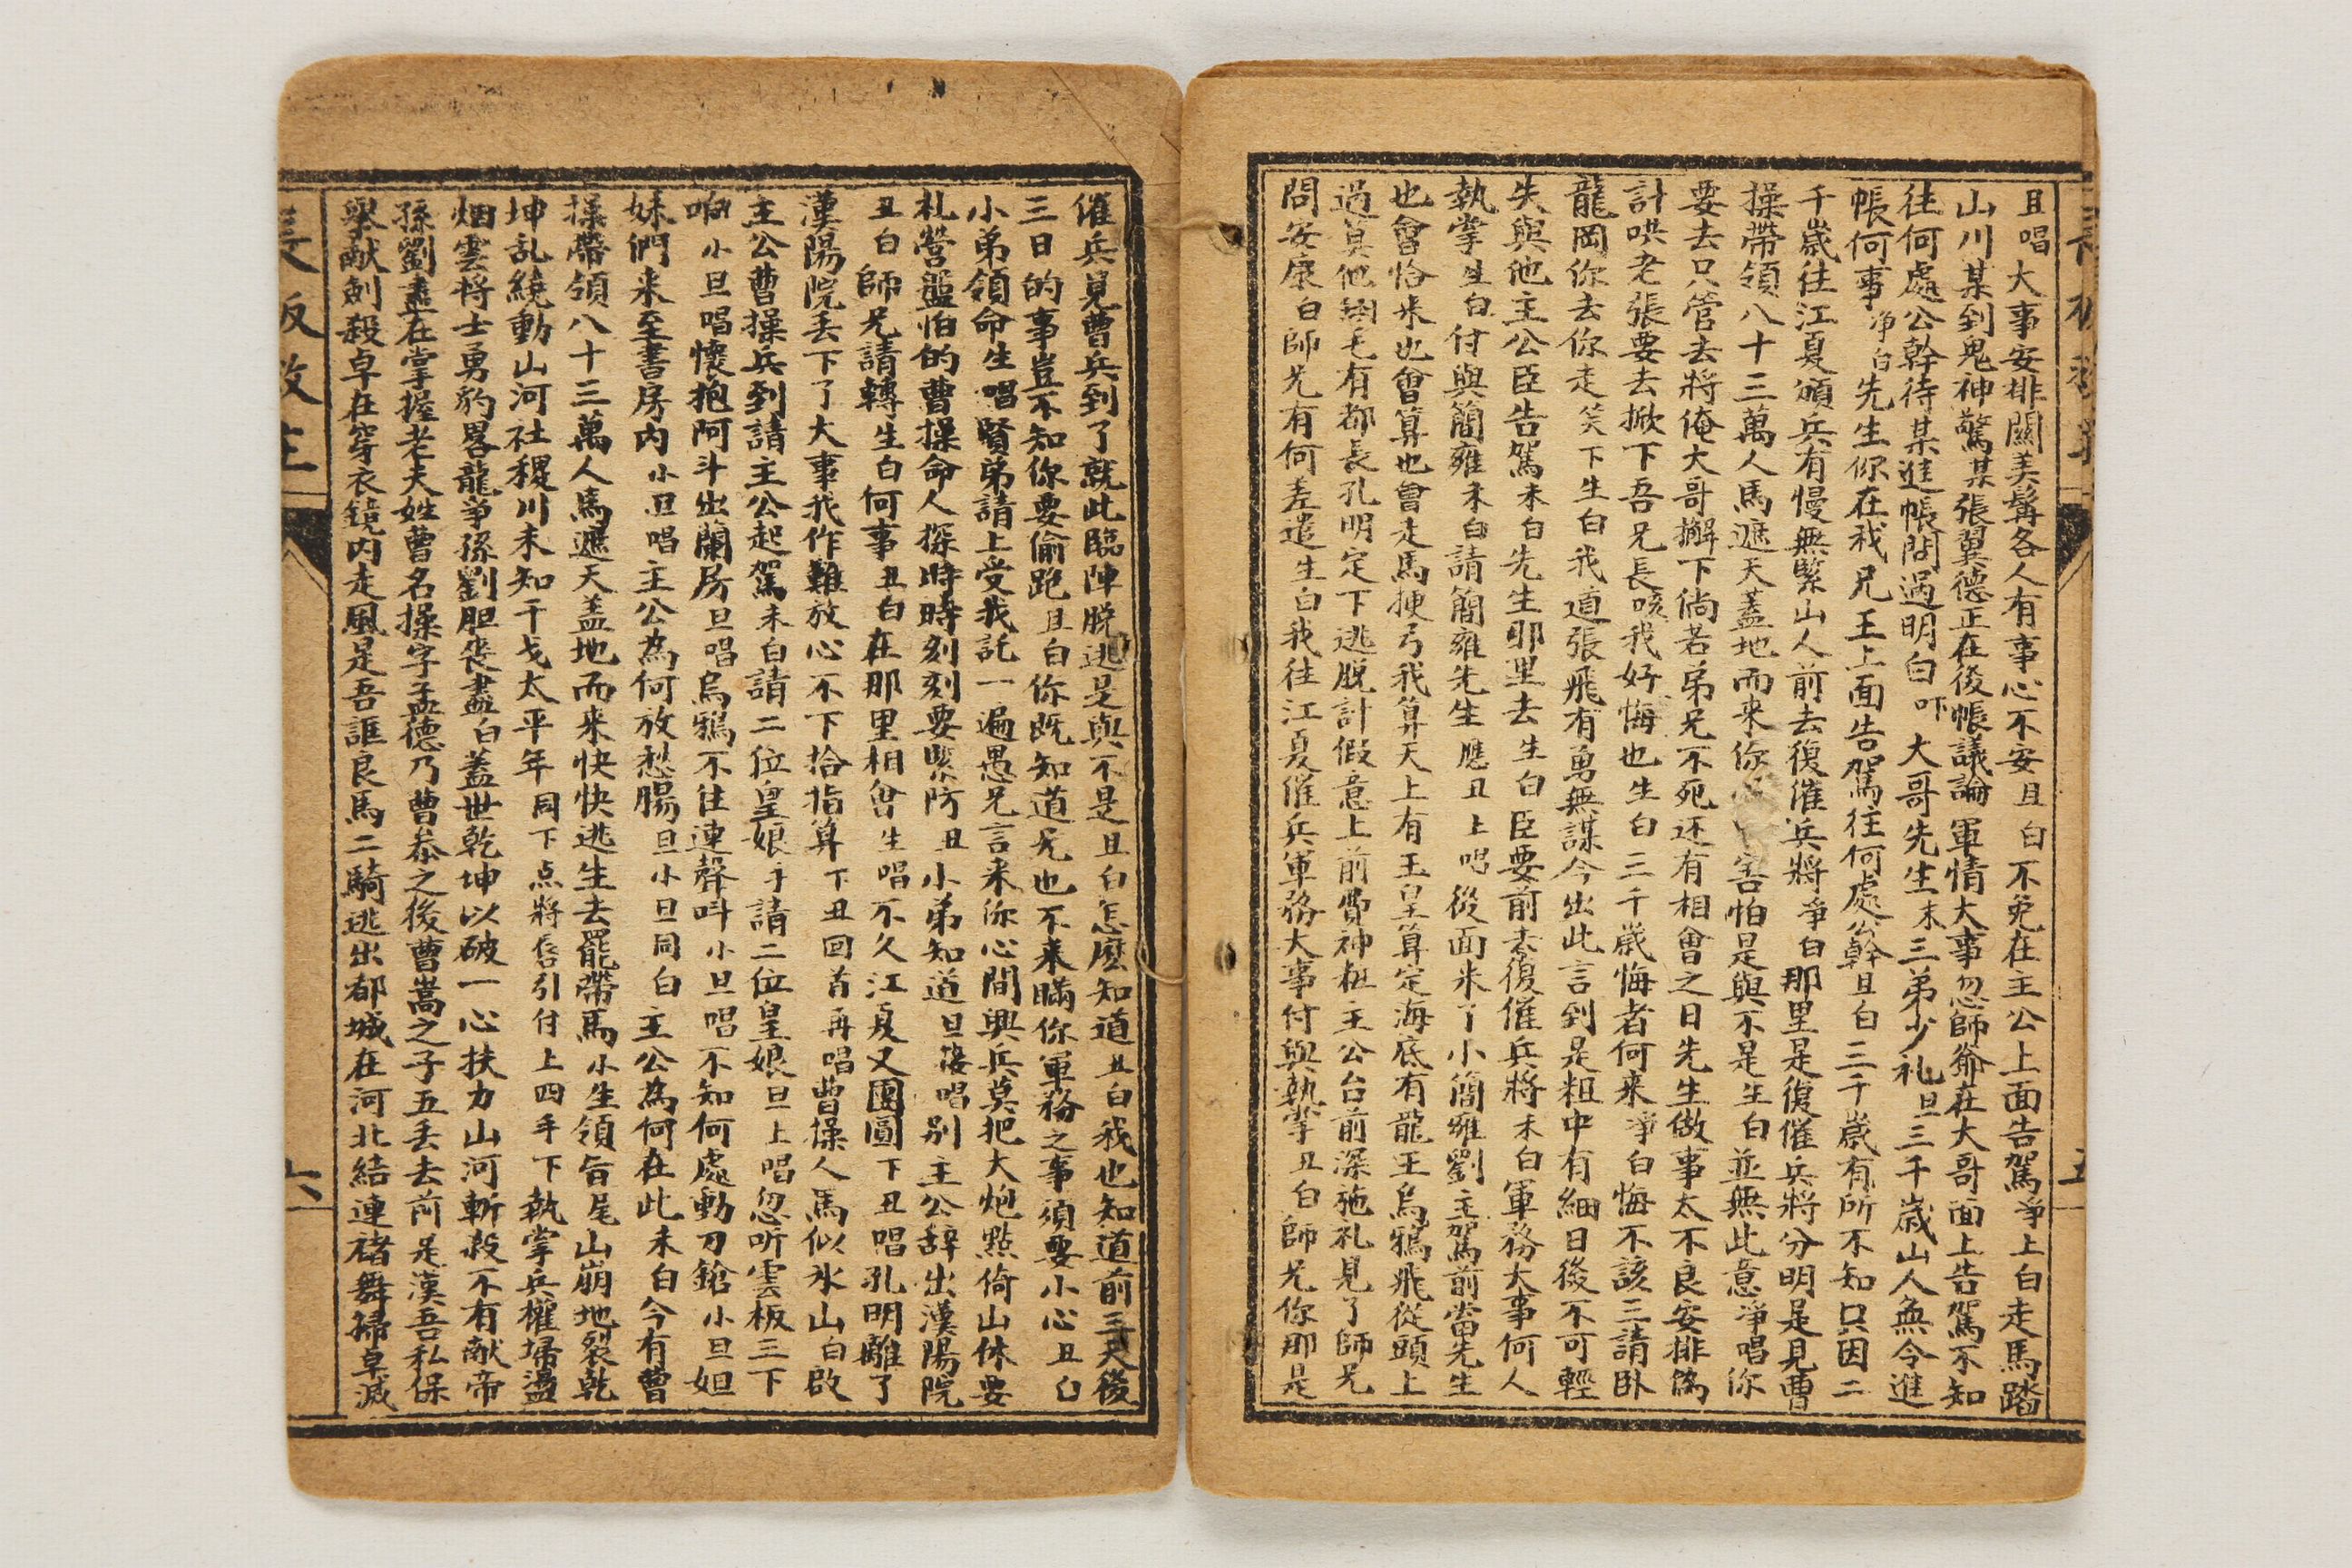 旦唱大事安排關美髯各人有事心不安旦白不免在主公上面告駕淨上白走馬踏
山川某到鬼神驚某張翼德正在後帳議論軍情大事忽師爺在大哥面上告駕不知
往何處公幹待某進帳問過明白吓大哥先生末三弟少礼旦三千歲山人無令進
帳何事淨白先生你在我兄王上面告駕往何處公幹旦白三千歲有所不知只因二
千歲往江夏頒兵有慢無緊山人前去復催兵將淨白那里是復催兵將分明是見曹
操帶領八十三萬人馬遮天蓋地而來你害怕是與不是生白並無此意淨唱你
要去只管去將俺大哥擲下倘若弟兄不死还有相會之日先生做事太不良安排為
計哄老張要去掀下吾兄長咳我好悔也生白三千歲悔者何來淨白悔不該三請卧
龍岡你去你走笑下生白我道張飛有勇無謀今出此言到是粗中有細日後不可輕
失與他主公臣告駕末白先生那里去生白臣要前去復催兵將末白軍務大事何人
執掌生白付與簡雍末白請簡雍先生應丑上唱後面來了小簡雍劉主駕前當先生
也會恰來也會算也會走馬挷弓我算天上有玉皇算定海底有龍王烏鴉飛從頭上
過算他翎毛有都長孔明定下逃脫計假意上前費神柤主公台前深施礼見了師兄
問安康白師兄有何差遣生白我往江夏催兵軍務大事付與執掌丑白師兄你那是
長板救主
六
催兵見曹兵到了就此臨陣脫逃是與不是旦白怎麼知道丑白我也知道前三天後
三日的事豈不知你要偷跑旦白你既知道兄也不來瞞你軍務之事須要小心丑白
小弟領命生唱賢弟請上受我託一遍愚兄言來你心間與兵莫把大炮點倚山休要
札營盤怕的曹操命人探時時刻刻要緊防丑小弟知道旦接唱別主公辞出漢陽院
丑白師兄請轉生白何事丑白在那里相會生唱不久江夏又團圓下丑唱孔明離了
漢陽院丢下了大事我作難放心不下拾指算下丑回首再唱曹操人馬似氷山白啟
主公曹操兵到請主公起駕末白請二位皇娘手請二位皇娘旦上唱忽听雲板三下
响小旦唱懷抱阿斗出蘭房旦唱烏鴉不住連聲呌小旦唱不知何處動刀鎗小旦妲
妹們來至書房內小旦唱主公為何放愁腸旦小旦同白主公為何在此末白今有曹
操帶領八十三萬人馬遮天盖地而來快快逃生去罷帶馬小生領旨尾山崩地裂乾
坤乱繞動山河社稷川未知干戈太平年同下点將唇引付上四手下執掌兵權埽盪
烟雲將士勇豹畧龍爭孫劉胆丧盡白蓋世乾坤以破一心扶力山河斬殺不有献帝
孫劉盡在掌握老夫姓曹名操字孟德乃曹叅之後曹嵩之子五丢去前是漢吾私保
舉献劍殺卓在穿衣鏡內走風是吾誆良馬二騎逃出都城在河北結連禇舞掃卓滅